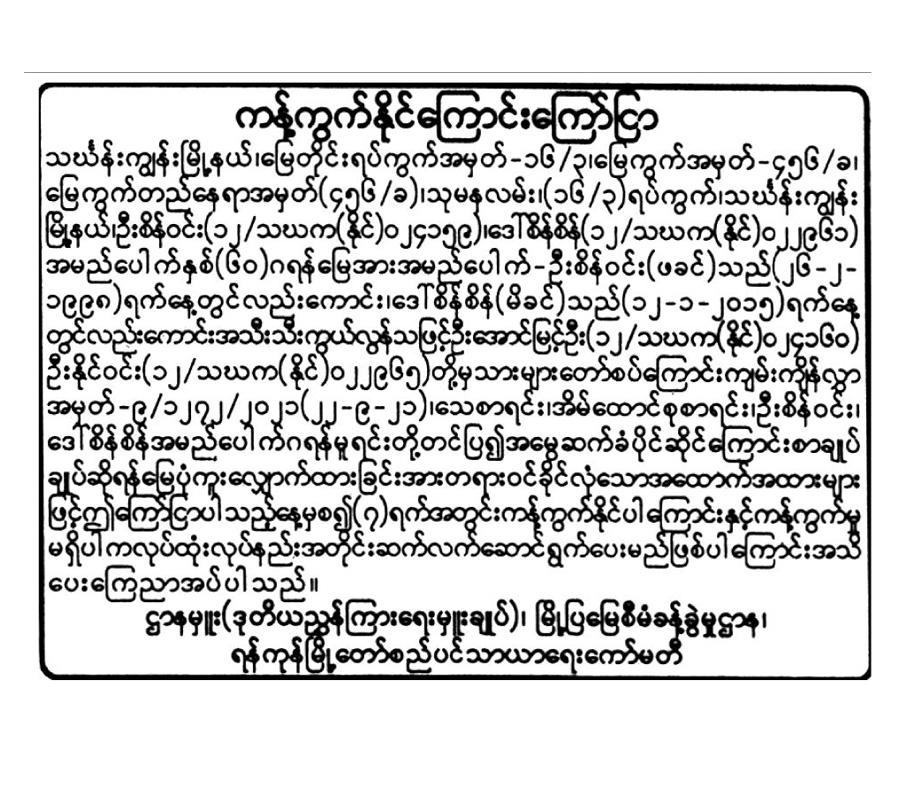 ကန့်ကွက်နိုင်ကြောင်းကြော်ငြာ
သင်္ဃန်းကျွန်းမြို့နယ်၊မြေတိုင်းရပ်ကွက်အမှတ်-၁၆/၃၊မြေကွက်အမှတ်-၄၅၆/ခ၊
မြေကွက်တည်နေရာအမှတ်(၄၅၆/ခ)၊သုမနလမ်း၊(၁၆/၃)ရပ်ကွက်၊သင်္ဃန်းကျွန်း
မြို့နယ်၊ဦးစိန်ဝင်း(၁၂/သဃက(နိုင်)၀၂၄၁၅၉)၊ဒေါ်စိန်စိန်(၁၂/သဃက(နိုင်)၀၂၂၉၆၁)
အမည်ပေါက်နှစ်(၆၀)ဂရန်မြေအားအမည်ပေါက်-ဦးစိန်ဝင်း(ဖခင်)သည်(၂၆-၂-
၁၉၉၈)ရက်နေ့တွင်လည်းကောင်း၊ဒေါ်စိန်စိန်(မိခင်)သည်(၁၂-၁-၂၀၁၅)ရက်နေ့
တွင်လည်းကောင်းအသီးသီးကွယ်လွန်သဖြင့်ဦးအောင်မြင့်ဦး(၁၂/သဃက(နိုင်)၀၂၄၁၆၀)
ဦးနိုင်ဝင်း(၁၂/သဃက(နိုင်)၀၂၂၉၆၅)တို့မှသားများတော်စပ်ကြောင်းကျမ်းကျိန်လွှာ
အမှတ်-၉/၁၂၇၂/၂၀၂၁(၂၂-၉-၂၁)၊သေစာရင်း၊အိမ်ထောင်စုစာရင်း၊ဦးစိန်ဝင်း၊
ဒေါ်စိန်စိန်အမည်ပေါက်ဂရန်မူရင်းတို့တင်ပြ၍အမွေဆက်ခံပိုင်ဆိုင်ကြောင်းစာချုပ်
ချုပ်ဆိုရန်မြေပုံကူးလျှောက်ထားခြင်းအားတရားဝင်ခိုင်လုံသောအထောက်အထားများ
ဖြင့်ဤကြော်ငြာပါသည့်နေ့မှစ၍(၇)ရက်အတွင်းကန့်ကွက်နိုင်ပါကြောင်းနှင့်ကန့်ကွက်မှု
မရှိပါကလုပ်ထုံးလုပ်နည်းအတိုင်းဆက်လက်ဆောင်ရွက်ပေးမည်ဖြစ်ပါကြောင်းအသိ
ပေးကြေညာအပ်ပါသည်။
ဌာနမှူး(ဒုတိယညွှန်ကြားရေးမှူးချုပ်)၊ မြို့ပြမြေစီမံခန့်ခွဲမှုဌာန၊
ရန်ကုန်မြို့တော်စည်ပင်သာယာရေးကော်မတီ